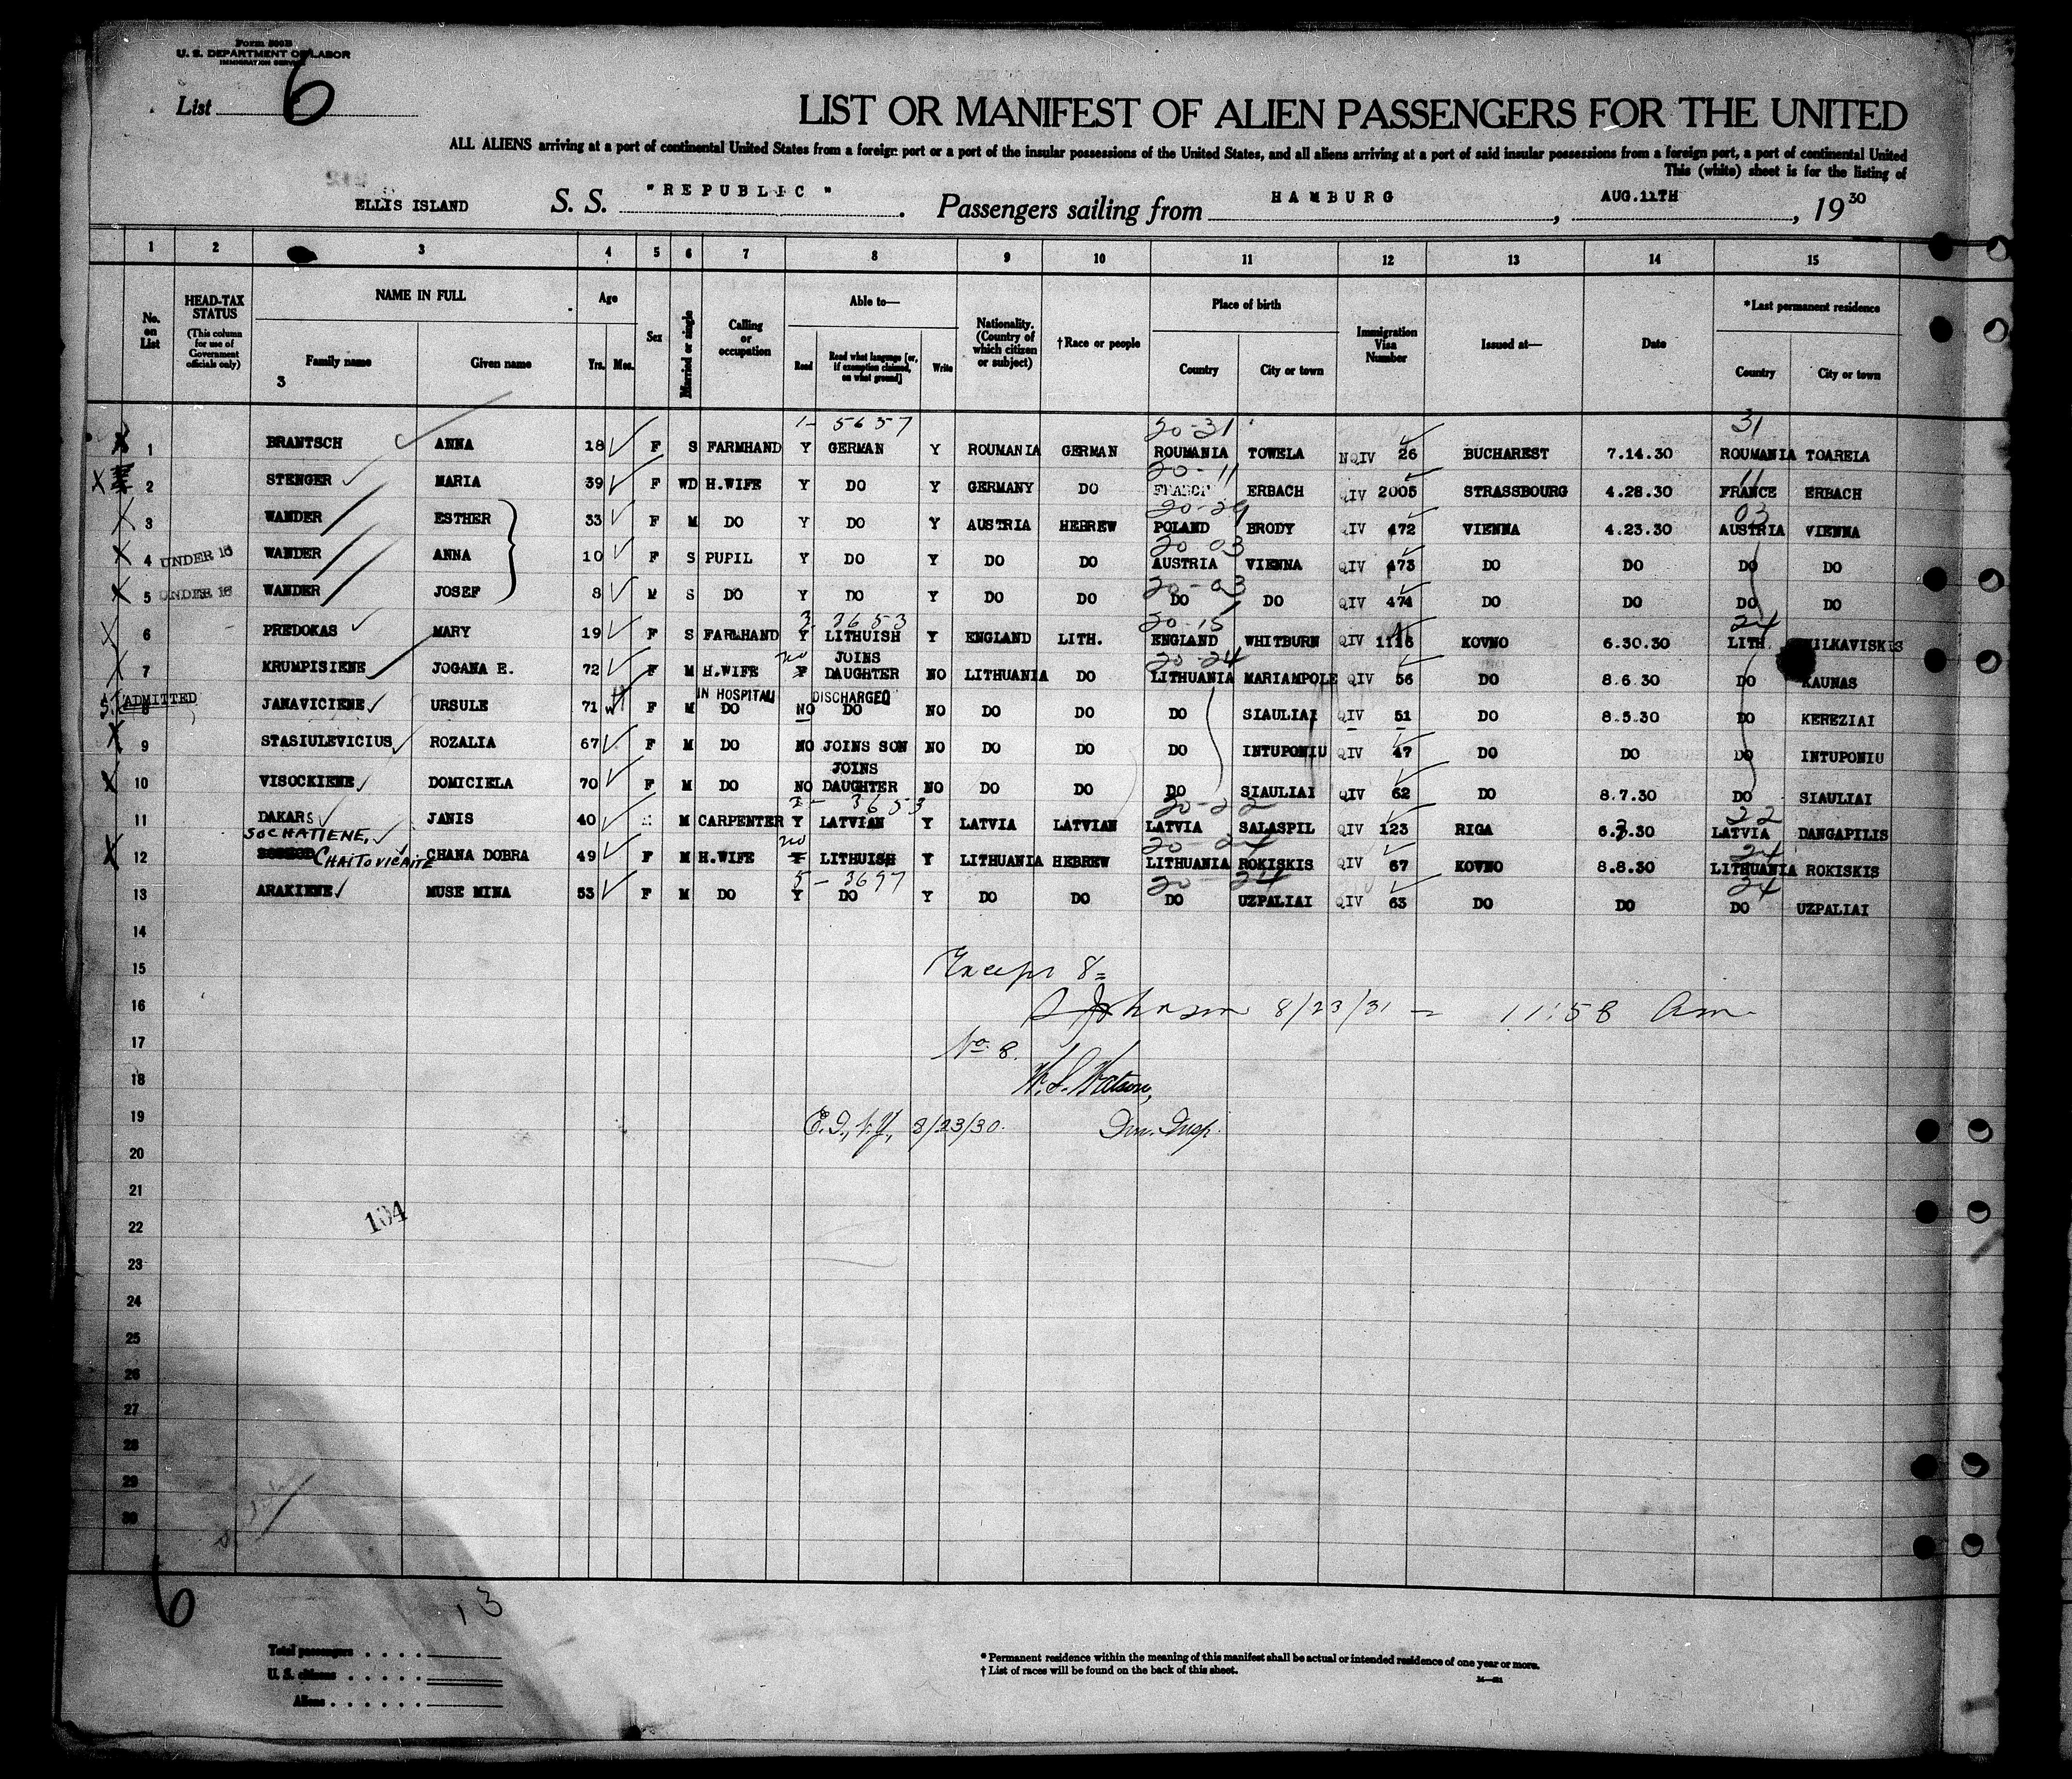 Form 500B
U. S. DEPARTMENT OF LABOR
IMMIGRATION SERVICE
List 6
LIST OR MANIFEST OF ALIEN PASSENGERS FOR THE UNITED
ALL ALIENS arriving at a port of continental United States from a foreign port or a port of the insular possessions of the United States, and all aliens arriving at a port of said insular possessions from a foreign port, a port of continental United
This (white) sheet is for the listing of
ELLIS ISLAND S. S. "REPUBLIC". Passengers sailing from HAMBURG, AUG.11TH, 1930
1 2 3 4 5 6 7 8 9 10 11 12 13 14 15
No. on List
HEAD-TAX STATUS (This column for use of Government officials only)
NAME IN FULL Family name Given name
3
Age Yrs. Mos.
Sex
Married or single
Calling or occupation
Able to— Read Read what language [or, if exemption claimed, on what ground] Write
Nationality. (Country of which citizen or subject)
†Race or people
Place of birth Country City or town
Immigration Visa Number
Issued at—
Date
*Last permanent residence Country City or town
1- 5657 20-31 31
1 BRANTSCH ANNA 18 F S FARMHAND Y GERMAN Y ROUMANIA GERMAN ROUMANIA TOWELA NQIV 26 BUCHAREST 7.14.30 ROUMANIA TOARELA
20-11 11
2 STENGER MARIA 39 F WD H.WIFE Y DO Y GERMANY DO FRANCE ERBACH QIV 2005 STRASSBOURG 4.28.30 FRANCE ERBACH
20-29 03
3 WANDER ESTHER 33 F M DO Y DO Y AUSTRIA HEBREW POLAND BRODY QIV 472 VIENNA 4.23.30 AUSTRIA VIENNA
20 03
4 UNDER 16 WANDER ANNA 10 F S PUPIL Y DO Y DO DO AUSTRIA VIENNA QIV 473 DO DO DO DO
20-03
5 UNDER 16 WANDER JOSEF 8 M S DO Y DO Y DO DO DO DO QIV 474 DO DO DO DO
3 3653 20-15 24
6 PREDOKAS MARY 19 F S FARMHAND Y LITHUISH Y ENGLAND LITH. ENGLAND WHITBURN QIV 1116 KOVNO 6.30.30 LITH. VILKAVISKIS
no JOINS 20-24
7 KRUMPISIENE JOGANA E. 72 F M H.WIFE DAUGHTER NO LITHUANIA DO LITHUANIA MARIAMPOLE QIV 56 DO 8.6.30 DO KAUNAS
ADMITTED IN HOSPITAL DISCHARGED
8 JANAVICIENE URSULE 71 F M DO NO DO NO DO DO DO SIAULIAI QIV 51 DO 8.5.30 DO KEREZIAI
9 STASIULEVICIUS ROZALIA 67 F M DO NO JOINS SON NO DO DO DO INTUPONIU QIV 47 DO DO DO INTUPONIU
JOINS
10 VISOCKIENE DOMICIELA 70 F M DO NO DAUGHTER NO DO DO DO SIAULIAI QIV 62 DO 8.7.30 DO SIAULIAI
3- 3653 20-22 22
11 DAKARS JANIS 40 M CARPENTER Y LATVIAN Y LATVIA LATVIAN LATVIA SALASPIL QIV 123 RIGA 6.3.30 LATVIA DANGAPILIS
SOCHATIENE, no 20-24 24
12 CHAITOVICAITE CHANA DOBRA 49 F M H.WIFE LITHUISH Y LITHUANIA HEBREW LITHUANIA ROKISKIS QIV 67 KOVNO 8.8.30 LITHUANIA ROKISKIS
5-3697 20-24 24
13 ARAKIENE MUSE MINA 53 F M DO Y DO Y DO DO DO UZPALIAI QIV 63 DO DO DO UZPALIAI
14
15 Except 8=
16 Johnson 8/23/31 - 11:58 Am
17 No 8.
18 W.S. Watson,
19 E.I., N.Y., 8/23/30. Imm. Insp.
20
21
22 134
23
24
25
26
27
28
29
30
6
13
Total passengers
U. S. citizens
Aliens
* Permanent residence within the meaning of this manifest shall be actual or intended residence of one year or more.
† List of races will be found on the back of this sheet.